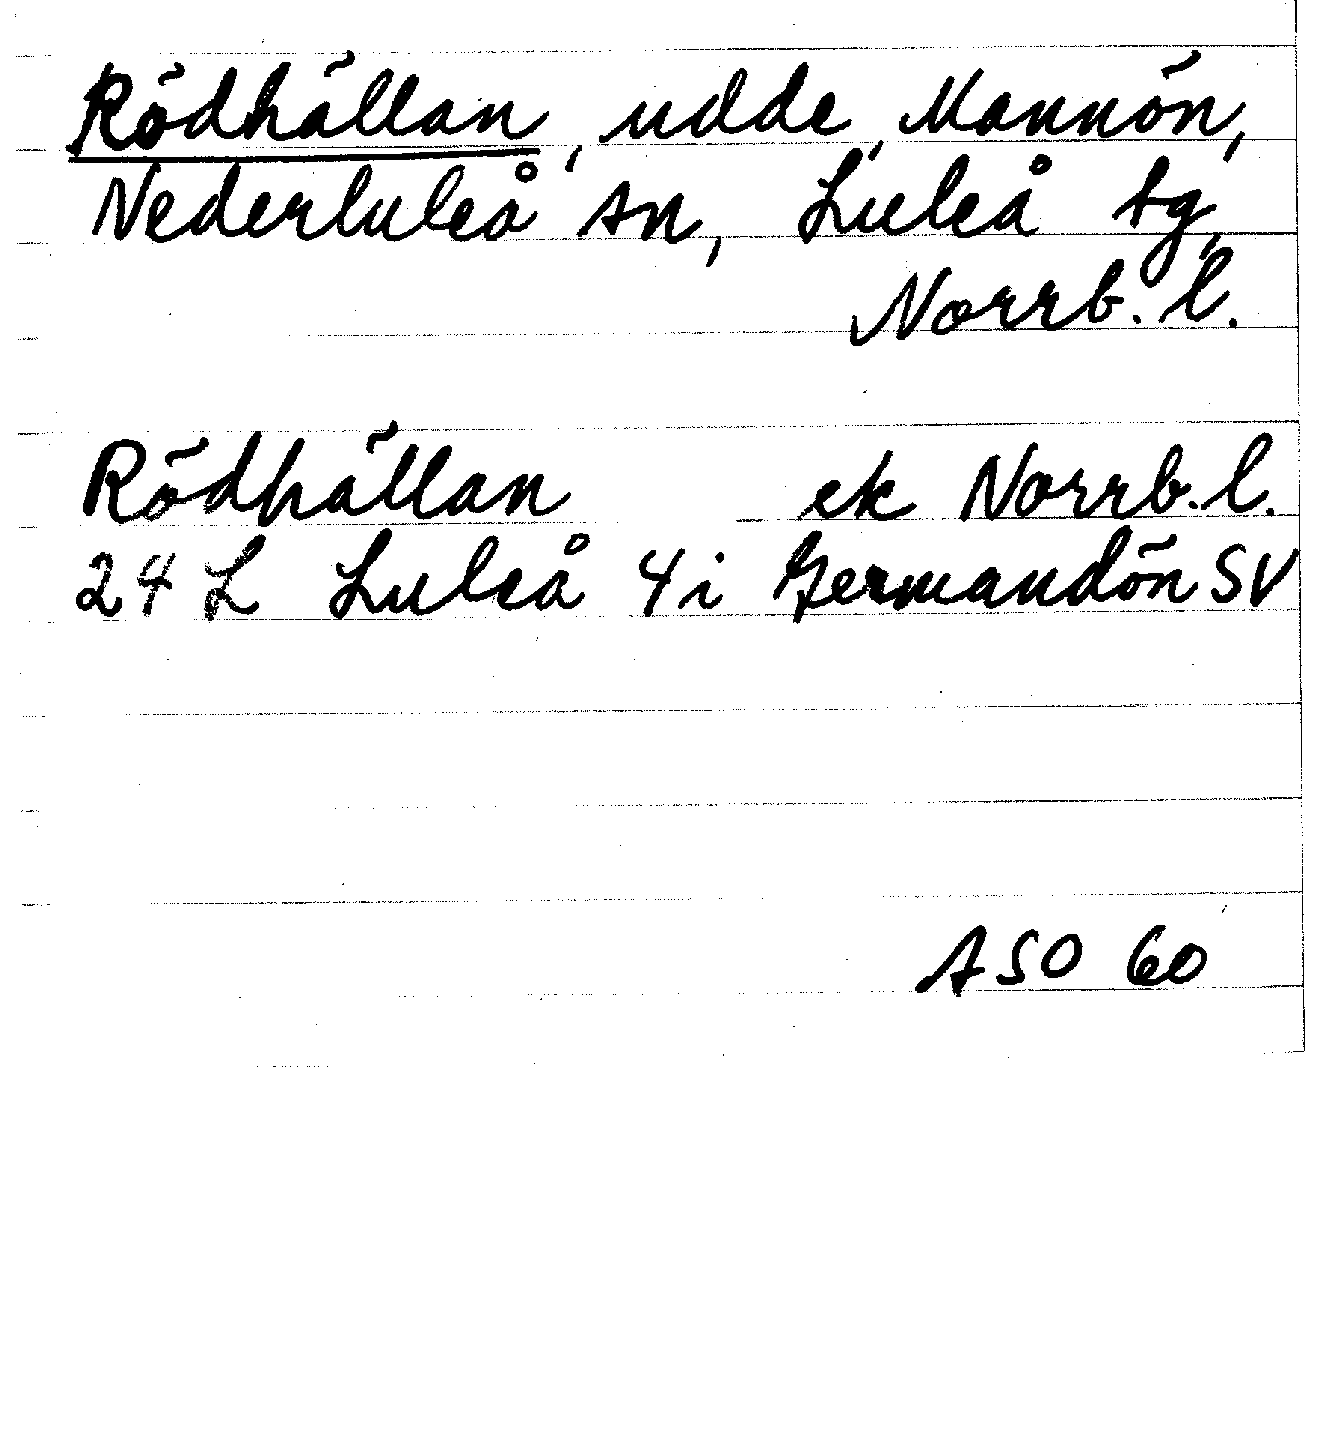 Rödhällan, udde, Mannön,
Nederluleå sn, Luleå tg,
Norrb. l.
Rödhällan ek Norrb. l.
24 L Luleå 4i Germandön SV
ASO 60